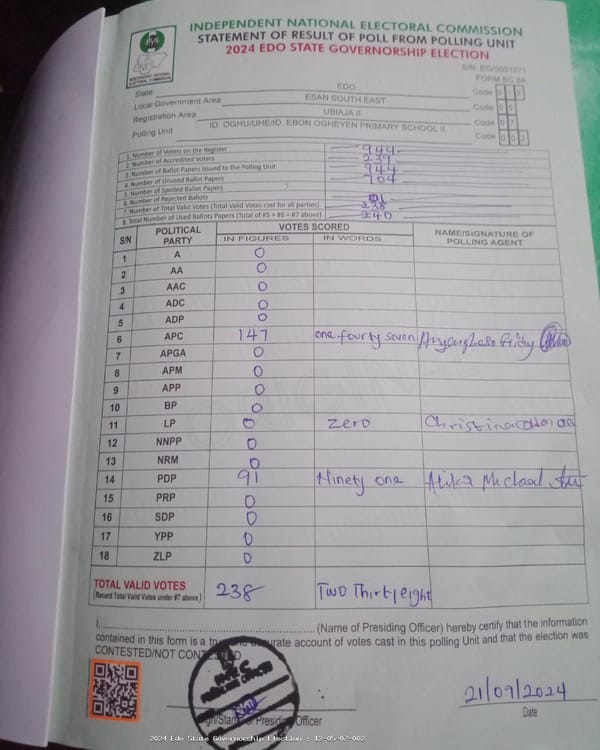 INDEPENDENT NATIONAL ELECTORAL COMMISSION
STATEMENT OF RESULT OF POLL FROM POLLING UNIT
2024 EDO STATE GOVERNORSHIP ELECTION
FORM EC 8A
State EDO Code 012
Local Government Area ESAN SOUTH EAST Code 05
Registration Area UBIAJA II Code 07
Polling Unit ID. OGHU/UHE/ID. EBON OGHEYEN PRIMARY SCHOOL II Code 002
1. Number of Voters on the Register 944
2. Number of Accredited Voters 239
3. Number of Ballot Papers Issued to the Polling Unit 944
4. Number of Unused Ballot Papers 704
5. Number of Spoiled Ballot Papers
6. Number of Rejected Ballots
7. Number of Total Valid Votes (Total Valid Votes cast for all parties) 238
8. Total Number of Used Ballots Papers (Total of #5 + #6 + #7 above) 240
S/N POLITICAL PARTY VOTES SCORED NAME/SIGNATURE OF POLLING AGENT
IN FIGURES IN WORDS
1 A 0
2 AA 0
3 AAC 0
4 ADC 0
5 ADP 0
6 APC 147 one fourty seven
7 APGA 0
8 APM 0
9 APP 0
10 BP 0
11 LP 0 Zero Christina
12 NNPP 0
13 NRM 0
14 PDP 91 Ninety one Michael
15 PRP 0
16 SDP 0
17 YPP 0
18 ZLP 0
TOTAL VALID VOTES 238 Two Thirty eight
(Record Total Valid Votes under #7 above)
I, (Name of Presiding Officer) hereby certify that the information
contained in this form is a true and accurate account of votes cast in this polling Unit and that the election was
CONTESTED/NOT CONTESTED
21/09/2024
Presiding Officer Date
2024 Edo State Governorship Election : 12-05-07-002